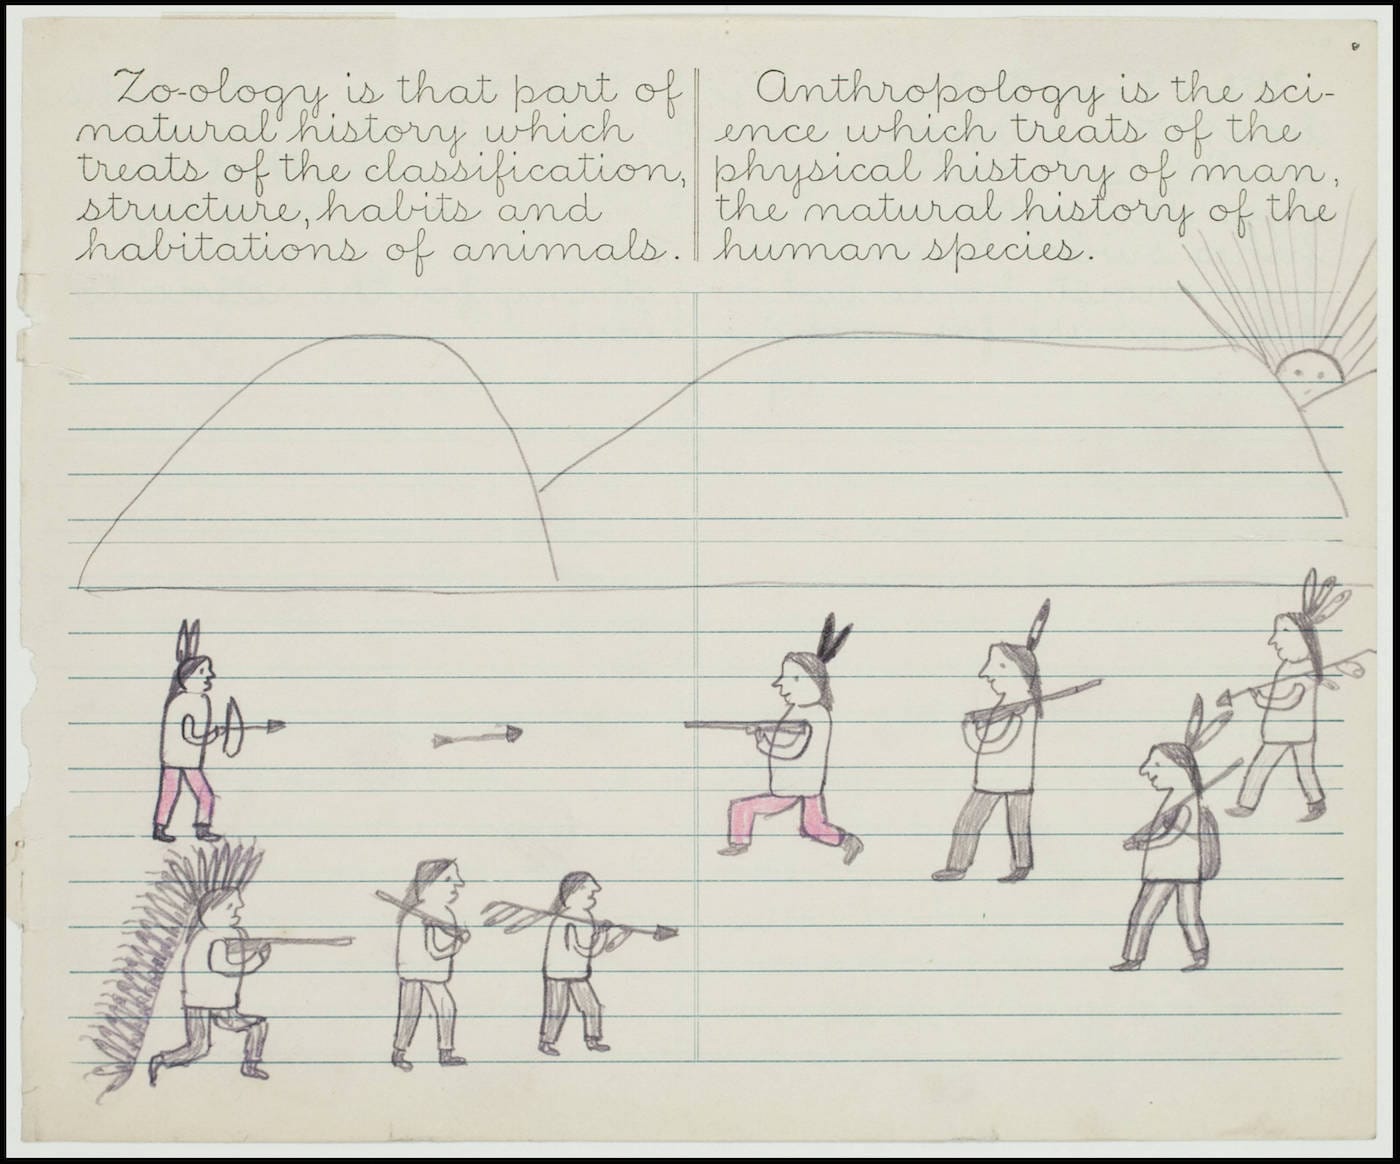 Zo-ology is that part of
natural history which
treats of the classification,
structure, habits and
habitations of animals.
Anthropology is the sci-
ence which treats of the
physical history of man,
the natural history of the
human species.